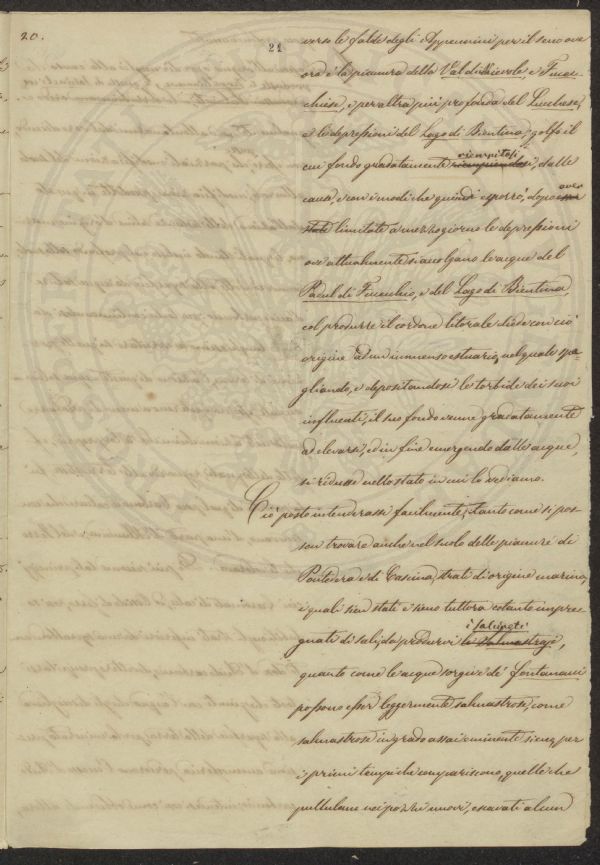 20.
21
verso le falde degli Appennini per il seno ove
ora è la pianura della Val di Nievole e Fucec-
chiese, e per altra più profonda del Lucchese,
e le depressioni del Lago di Bientina, golfo il
cui fondo gradatamente riempitosi, dalle
cause, e con i modi che quindi esporrò, dopo aver
limitate a mezzogiorno le depressioni
ove attualmente si accolgano le acque del
Padul di Fucecchio, e del Lago di Bientina,
col produrre il cordone litorale diede con ciò
origine ad un immenso estuario, nel quale spa-
gliando, e depositandosi le torbide dei suoi
influenti, il suo fondo venne gradatamente
ad elevarsi, ed in fine emergendo dalle acque,
si ridusse nello stato in cui lo vediamo.
Ciò posto intenderassi facilmente, tanto come si pos-
son trovare anche nel suolo delle pianure di
Pontedera e di Cascina, strati di origine marina,
i quali sien stati e sieno tuttora cotanto impre-
gnati di sali, da produrvi i salicreti
le Salmastraje,
quanto come le acque sorgive de' fontanani
possono esser leggermente salmastrose, come
salmastrose in grado assai eminente sieno, per
i primi tempi che compariscono, quelle che
pullulano nei pozzi nuovi, escavati a lcun